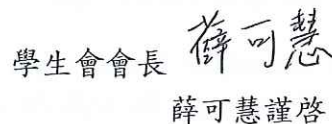 學生會會長 薛可慧
薛可慧謹啓